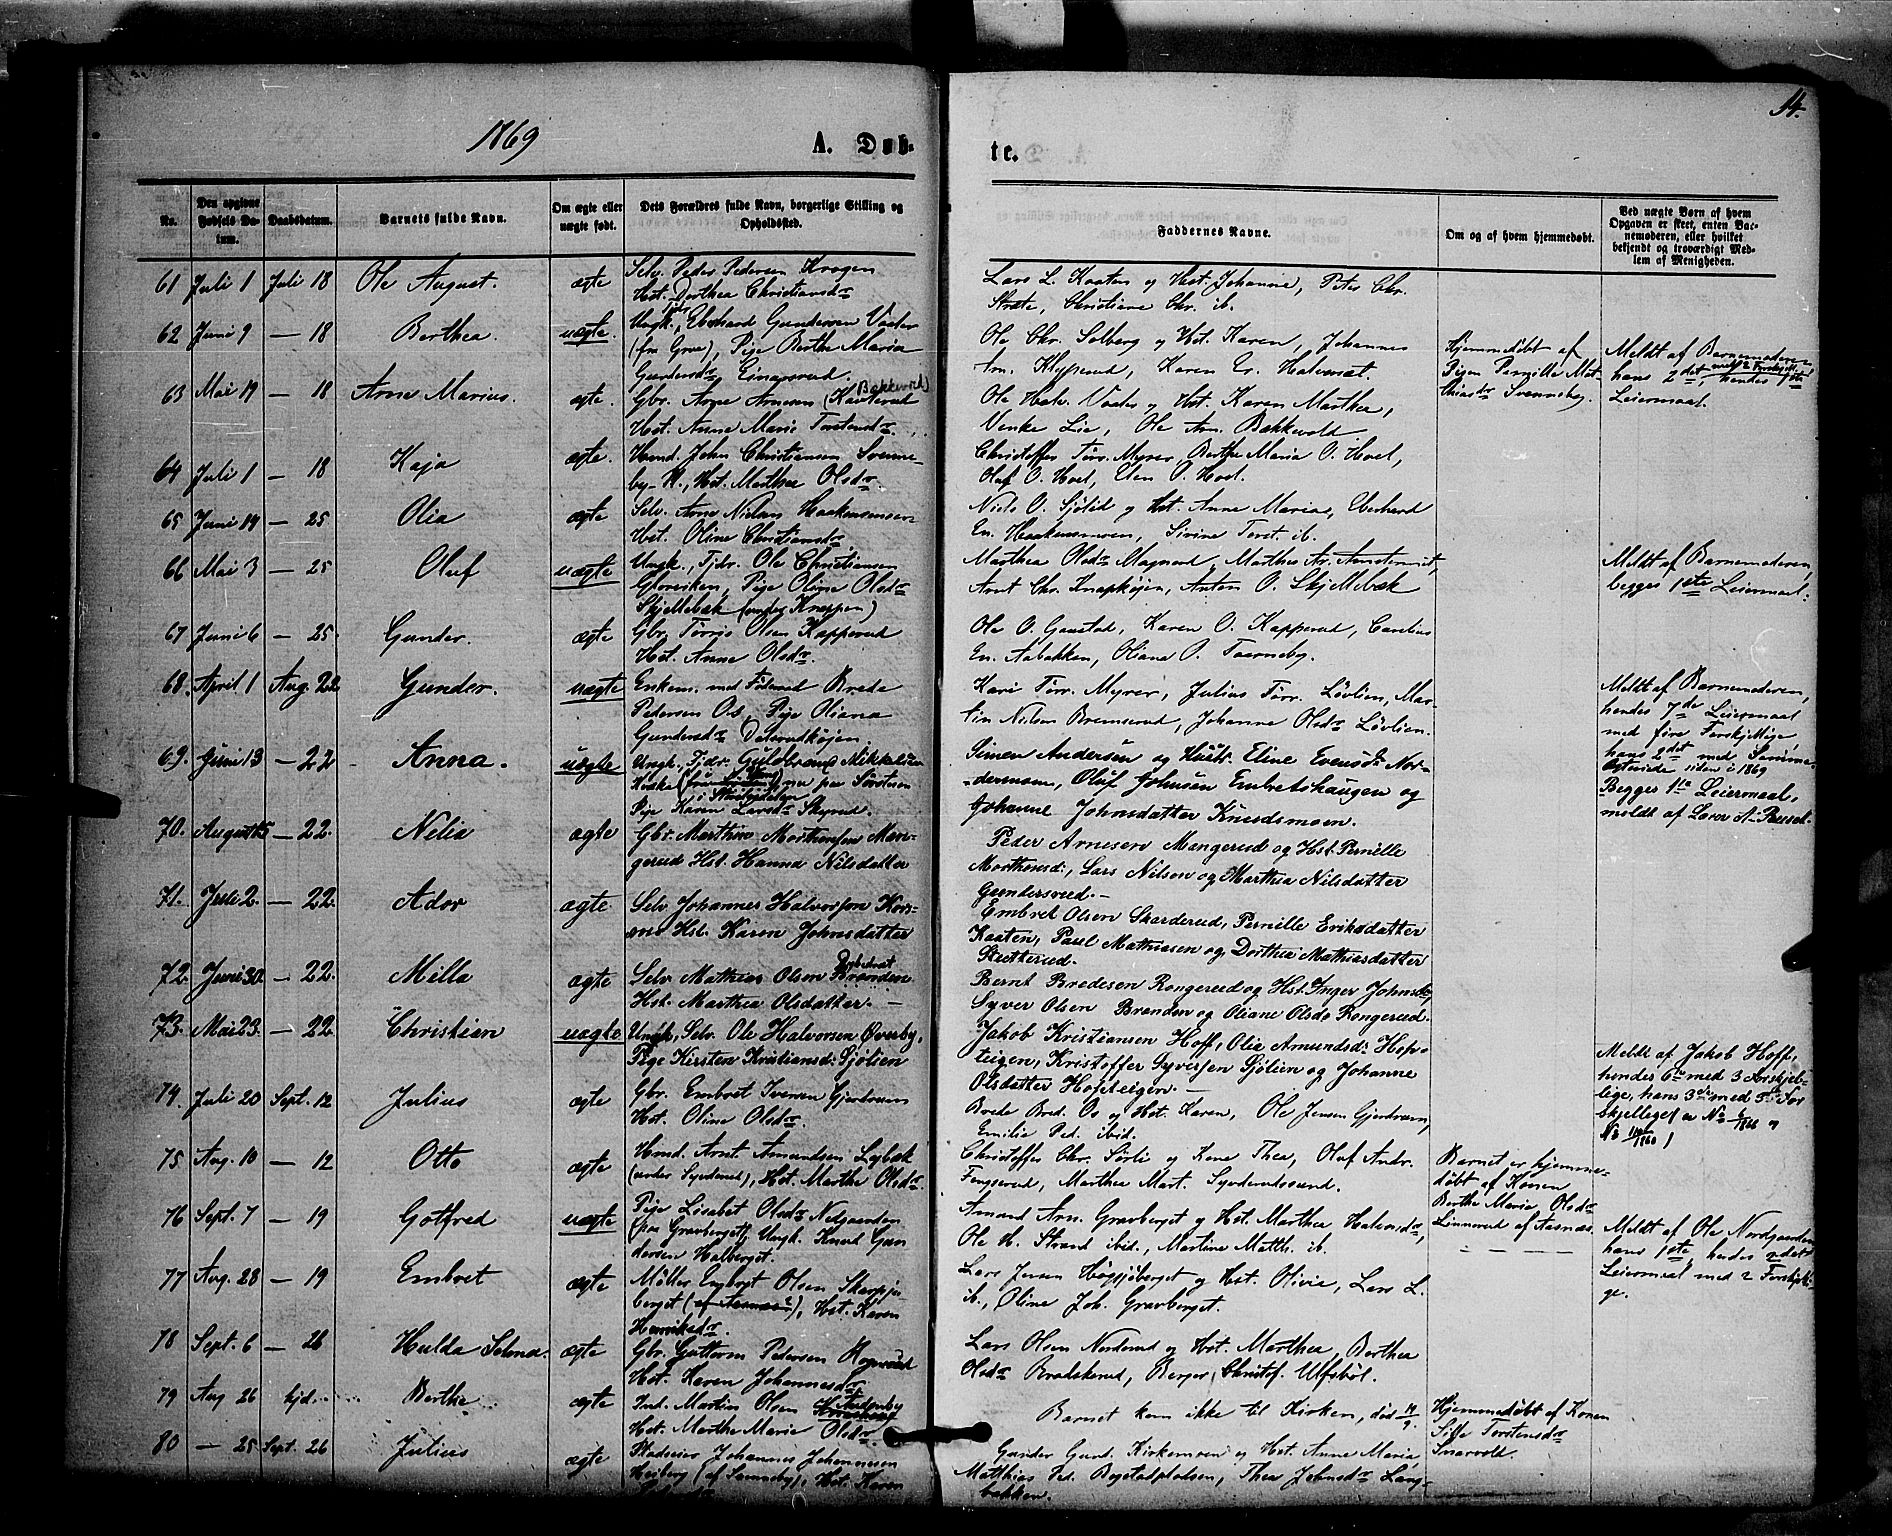 14.
1869
A. Døb-
te.
No.
Den opgivne Fødsels Datum.
Daabsdatum.
Barnets fulde Navn.
Om ægte eller uægte født.
Dets Forældres fulde Navn, borgerlige Stilling og Opholdssted.
Faddernes Navne.
Om og af hvem hjemmedøbt.
Ved uægte Børn af hvem Opgaven er skeet, enten Barnemoderen, eller hvilket bekjendt og troværdigt Medlem af Menigheden.
61 Juli 1 Juli 18 Ole August. ægte
Selv. Peder Pedersen Krogen
Hst. Dorthea Christiansdr
Lars L. Kaaten og Hst. Johanne, Peter Chr.
Stræte, Christiane Chr. ib.
62 Juni 9 — 18 Berthea. uægte.
Ungk., Eberhard Gundersen Vaaler
(fra Grue), Pige Berthe Maria
Gundersdr Einarsrud.
Ole Chr. Solberg og Hst. Karen, Johannes
Am. Klypserud, Karen Er. Halvorset.
Hjemmedøbt af
Pigen Pernille Mat-
thiasdr Svenneby.
Meldt af Barnemoderen,
hans 2det med 2 Forskjell., hendes 1ste
Leiermaal.
63 Mai 19 — 18 Arne Marius. ægte.
Gbr. Arne Arnesen (Bakkevold)
Hst. Anne Marie Torstensdr.
Ole Halv. Vaaler og Hst. Karen Marthea,
Venke Lie, Ole Arn. Bakkevold
64 Juli 1 — 18 Kaja ægte.
Hmd. John Christiansen Svenne-
by-N., Hst. Marthea Olsdr.
Christoffer Tørr. Myrer, Berthe Maria O. Hoel,
Oluf O. Hoel, Elen O. Hoel.
65 Juni 14 — 25 Olia ægte
Selv. Arne Nielsen Haakensmoen
Hst. Oline Christiansdr
Niels O. Sjølid og Hst. Anne Marias, Eberhard
En. Haakensmoen, Sirine Torst. ib.
66 Mai 3 — 25 Oluf uægte
Ungk., Tjdr. Ole Christiansen
Gjerviken, Pige Oline Olsdr
Skjellebæk (under Knappen)
Marthea Olsdr Magnord, Marthea Ar.
Arnt Chr. Knapkøjen, Anton O. Skjellebæk
Meldt af Barnemoderen,
begges 1ste Leiermaal.
67 Juni 6 — 25. Gunder. ægte
Gbr. Tørris Olsen Kapperud
Hst. Anne Olsdr.
Ole O. Gaustad, Karen O. Kapperud, Carelius
En. Aabakken, Oliane O. Taerneby.
68. April 1 Aug. 22 Gunder. uægte
Enkem. med Føderaad Brede
Pedersen Os, Pige Oliana
Gundersdr Dalsrudkøjen.
Kari Tørr. Myrer, Julius Tørr. Løvlien, Mar-
tin Nilsen Bremserud, Johanne Olsdr Løvlien.
Meldt af Barnemoderen,
hendes 7de Leiermaal
med fire Forskjellige,
hans 2det med Samme.
69. Juni 13 — 22 Anna. uægte
Ungk., Tjdr. Guldbrand Mikkelsen
Pige Karen Larsdr Skyrud.
Simen Andersen og Hustr. Eline Evensdr Nor-
dermoen, Oluf Johnsen Embretshaugen og
Johanne Johnsdatter Knudsmoen.
Begges 1ste Leiermaal,
meldt af Lars A. Busch.
70. August 5 — 22. Nelia ægte
Gbr. Marthin Marthinsen Man-
gerud Hst. Hanna Nilsdatter
Peder Arnesen Mangerud og Hst. Pernille
Morthensd:, Lars Nilsen og Marthea Nilsdatter
Gundersrud.
71. Juli 2. — 22. Ador ægte
Selv Johannes Halvorsen Kors-
moe Hst. Karen Johnsdatter
Embret Olsen Skarderud, Pernille Eriksdatter
Kaaten, Paul Mathiasen og Dorthea Mathiasdatter
Slutterud.
72. Juni 30. — 22. Milla ægte
Selv Mathias Olsen Branden
Hst. Marthea Olsdatter. —
Bernt Bredesen Rongerud og Hst. Inger Johnsd.,
Syver Olsen Branden og Oliane Olsd. Rongerud.
73. Mai 23. — 22. Christian uægte
Ungk., Selv. Ole Halvorsen Øverby,
Pige Kirsten Kristiansd: Sjølien
Jakob Kristiansen Hoff, Olia Amundsd: Hof-
teigen, Kristoffer Syversen Sjølien og Johanne
Olsdatter Hofteigen. —
Meldt af Jakob Hoff,
hendes 6te med 3 Forskjel-
lige, hans 3die med
74. Juli 20 Sept. 12 Julius ægte
Gbr. Embret Iversen Gjerdrum
Hst. Oline Olsdr.
Brede Bred. Os og Hst. Karen, Ole Jensen Gjerdrum,
Emilie Ped. ibid.
75 Aug. 10 — 12 Otto ægte
Hmd. Arnt Amundsen Lybæk
Hst. Marthe Olsdr.
Christoffer Chr. Sørli og Kone Thea, Oluf Andr.
Fengserud, Marthea Mart. Syverudssund.
Barnet er hjemme-
døbt af Konen
Berthe Maria Olsdr
Linnerud af Aasnæs.
76 Sept. 7 — 19 Gotfred uægte
Pige Lisabet Olsdr Nordgaarden
(fra Gravberget), Ungk. Knud Gun-
dersen Halberget.
Amund Arn. Gravberget og Hst. Marthea Halvorsdr,
Ole H. Strand ibid., Martine Matth. ib.
Meldt af Ole Nordgaarden
hans 1ste, hendes
Leiermaal med 2 Forskjelli-
ge.
77 Aug. 28 — 19 Embret ægte
Møller Embret Olsen Skarpju-
berget (af Aasnæs?), Hst. Karen
Henriksdr.
Lars Jensen Høgsjøberget og Hst. Olivia, Lars L.
ib., Oline Joh. Gravberget.
78 Sept. 6 — 26 Hulda Selma. ægte
Gbr. Guttorm Pedersen
Hst. Karen Johannesdr
Lars Olsen Norderud og Hst. Marthea, Berthea
Olsdr Braskerud, Berger Christof. Ulfsbøl.
79 Aug 26 hjd. Berthe ægte
Ind. Martin Olsen
Hst. Marthe Marie Olsdr.
Barnet kom ikke til Kirken, død 14/9.
Hjemmedøbt af Konen
Silje Torstensdr
Snarvold.
80 — 25 Sept. 26 Julius ægte
Johannes Johannesen
Heiberg (af Svenneby), Hst. Karen
Gunder Gund. Kirkemoen og Hst. Anne Maria,
Matthias Ped. Bogstadpladsen, Thea Johnsdr Lang-
bakken.